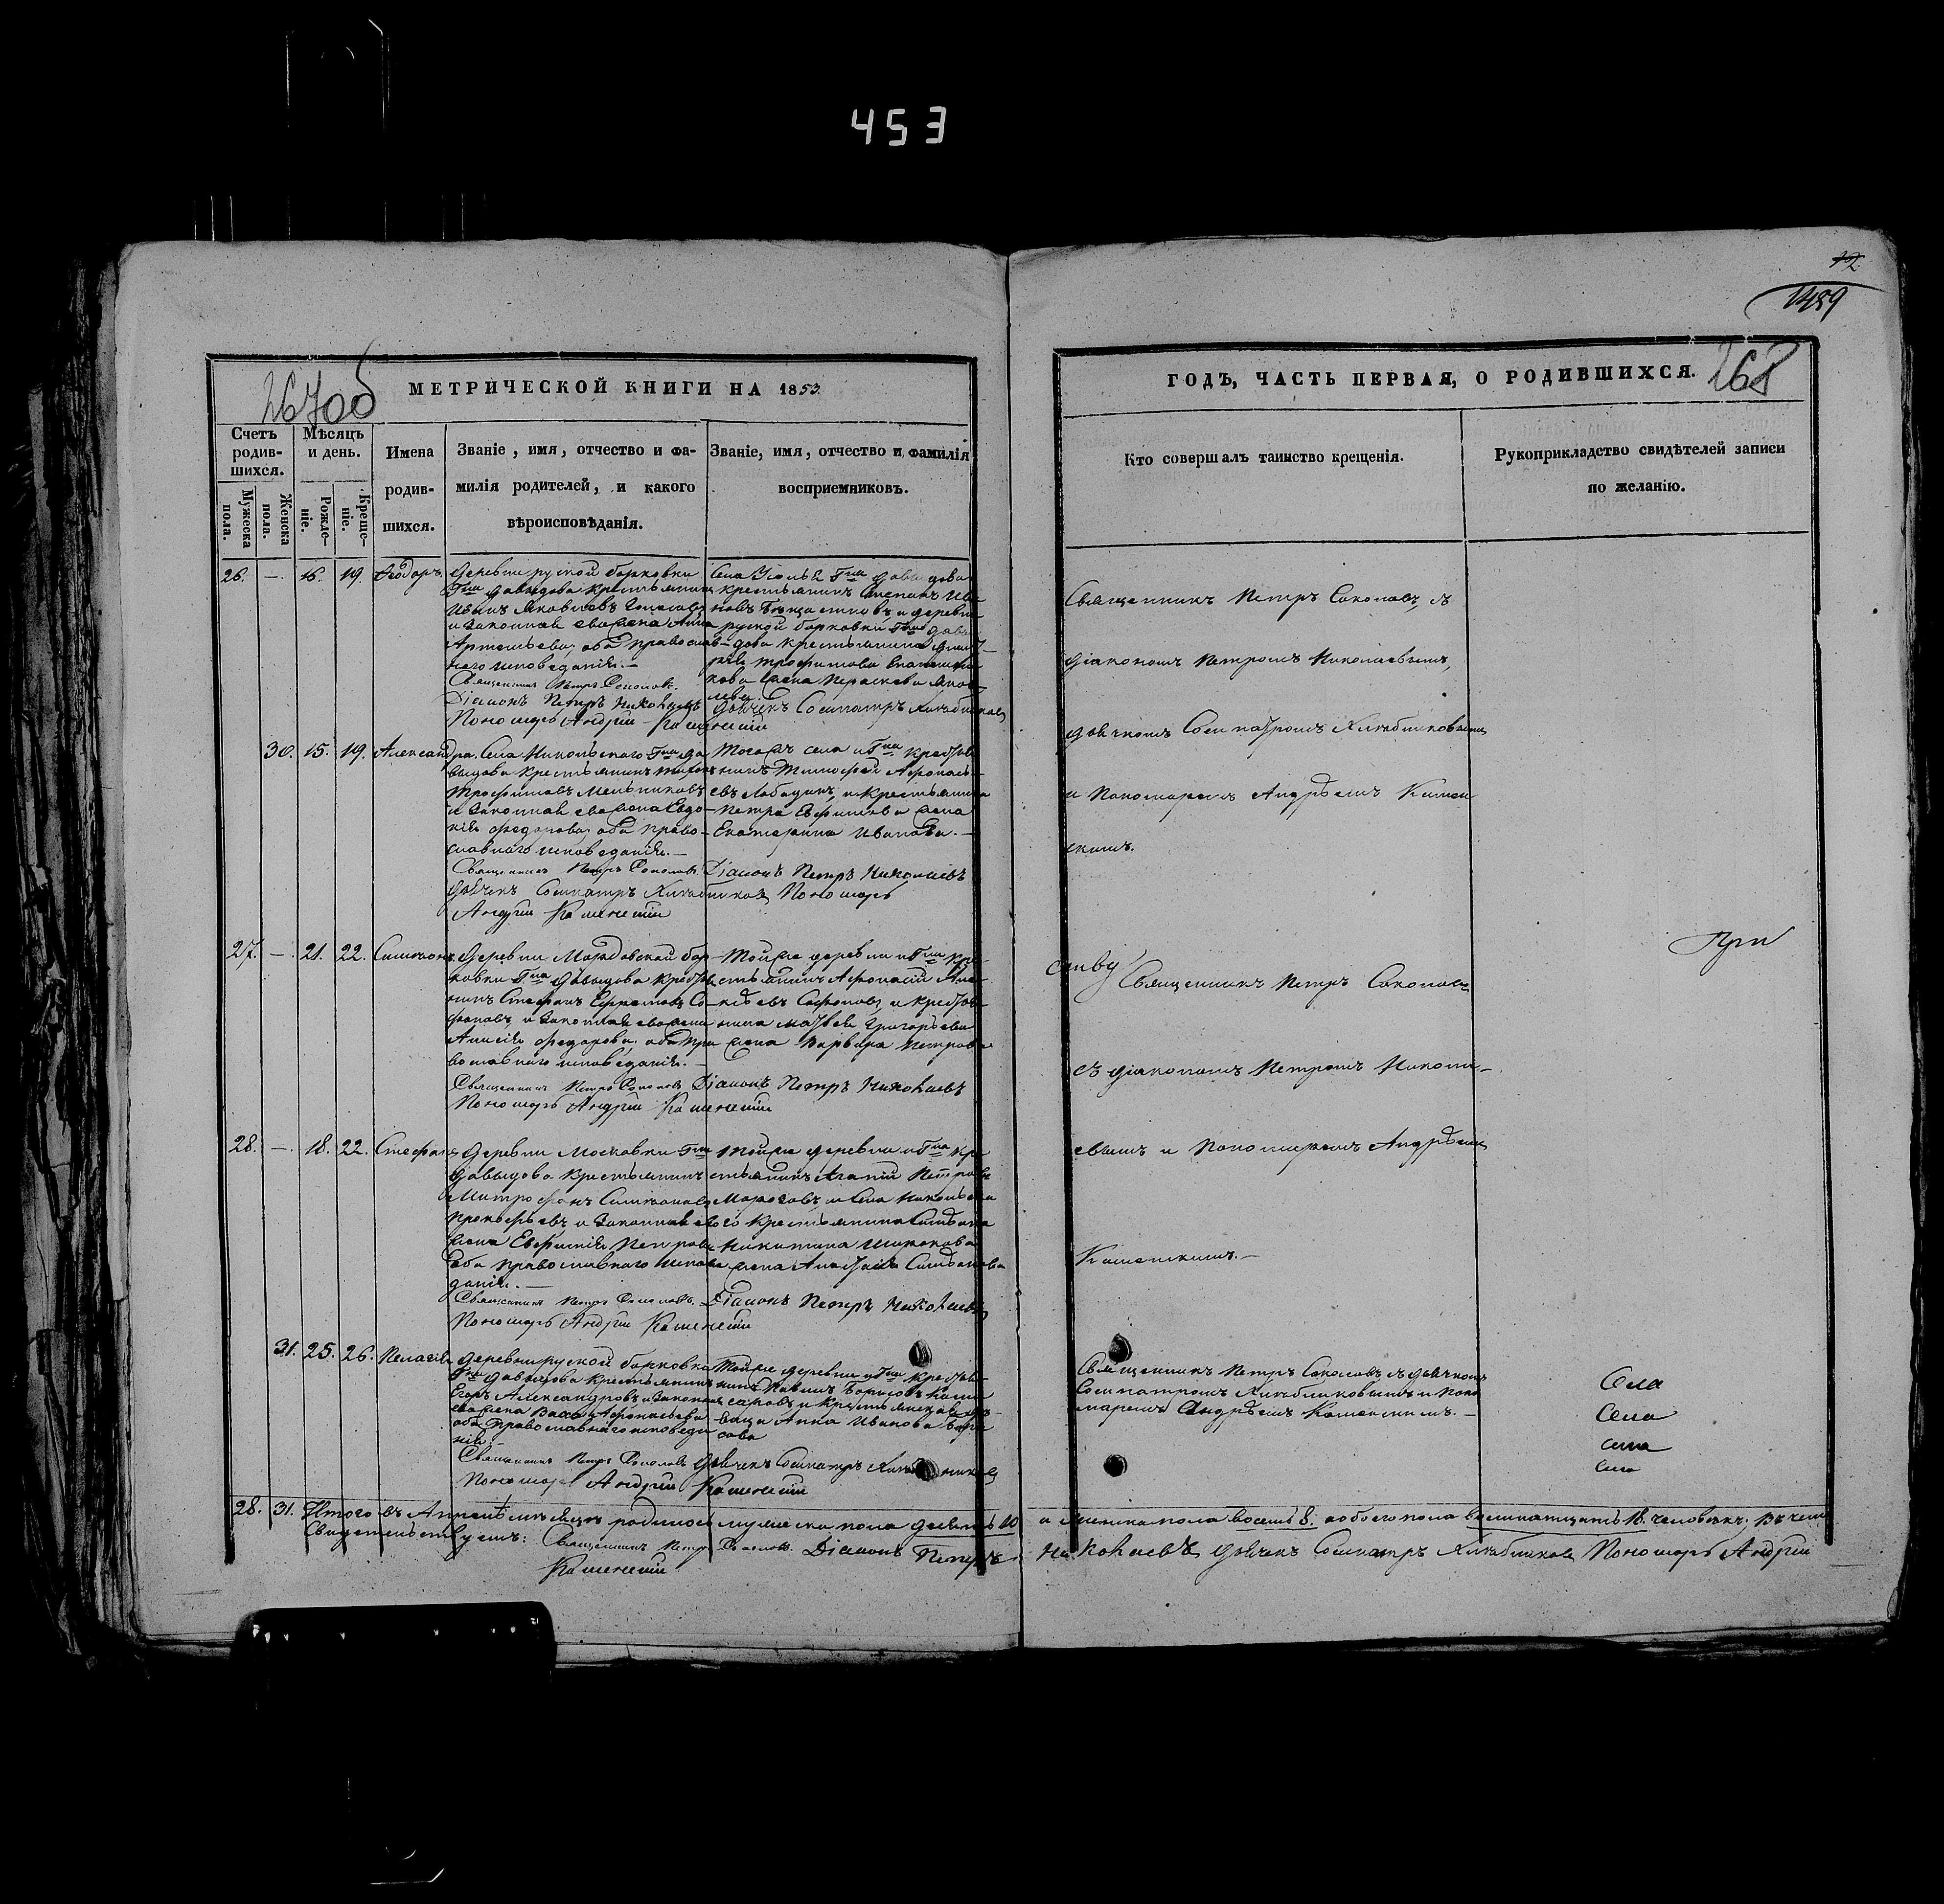 453
12
1489
267об
МЕТРИЧЕСКОЙ КНИГИ НА 1853
Счетъ родив-шихся.
Мужеска пола.
Женска пола.
Мѣсяцъ и день.
Рожде-ніе.
Креще-ніе.
Имена
родив-
шихся.
Званіе, имя, отчество и фа-
милія родителей, и какого
вѣроисповѣданія.
Званіе, имя, отчество и фамилія
восприемниковъ.
26. — 16. 19. Ѳеодоръ.
Деревни руской борковки
Гна Давыдова крестьянинъ
Иванъ Яковлевъ
и законная его жена Анна
Артемьева, оба православ-
наго исповеданія. —
Священникъ Петръ Соколовъ.
Діаконъ Петръ Николаевъ
Пономарь Андрей Каменскій
Села Усолья Гна Давыдова
крестьянинъ Степанъ Ива
новъ и деревни
руской борковки Гна Давы
дова крестьянина
рія Трофимова
кова жена Параскева Яков
лева
Дьячекъ Сосипатръ Хлѣбниковъ
30. 15. 19. Александра
Села Никольскаго Гна Да
выдова крестьянинъ
Трофимовъ Мельниковъ
и законная его жена Евдо
кія Федорова, оба право-
славнаго исповеданія. —
Священникъ Петръ Соколовъ. Діаконъ Петръ Николаевъ
Дьячекъ Сосипатръ Хлѣбниковъ Пономарь
Андрей Каменскій
Тогожъ села и Гна кресть
нинъ Тимофей Афонась
евъ Лободинъ, и крестьянина
Петра Ефимова жена
Екатерина Иванова. —
27. — 21. 22. Симеонъ.
Деревни Мордовской бор
ковки Гна Давыдова кресть
нинъ Стефанъ Со
фоновъ, и законная его жена
Анисія Федорова, оба пра
вославнаго исповеданія. —
Священникъ Петръ Соколовъ Діаконъ Петръ Николаевъ
Пономарь Андрей Каменскій
Тойже деревни и Гна кре
стьянинъ Афонасій Але
ксѣевъ Сафоновъ, и кресть
нина Матвея Григорьева
жена Варвара Петрова
28. — 18. 22. Стефанъ
Деревни Московки Гна
Давыдова крестьянинъ
Митрофанъ Симеоновъ
Прокофьевъ и законная его
жена Евфимія Петрова
оба православнаго испове
данія. —
Священникъ Петръ Соколовъ. Діаконъ Петръ Николаевъ
Пономарь Андрей Каменскій
Тойже деревни и Гна кре
стьянинъ Агапій Петровъ
Морозовъ, и села Никольска
го крестьянина
Никитина
жена Анастасія
31. 25. 26. Пелагія
Деревни руской борковки
Гна Давыдова крестьянинъ
Егоръ Александровъ и законная
его жена Васса Афонасьева
оба православнаго исповеда
нія
Священникъ Петръ Соколовъ Дьячекъ Сосипатръ Хлѣбниковъ
Пономарь Андрей Каменскій
Тойже деревни и Гна кресть
нинъ Павелъ Борисовъ
Анна Иванова
28. 31. Итого въ Апрелѣ мѣсяцѣ родилось мужеска пола 10
Свидетельствуемъ: Священникъ Петръ Соколовъ. Діаконъ Петръ
Каменскій
ГОДЪ, ЧАСТЬ ПЕРВАЯ, О РОДИВШИХСЯ.
268
Кто совершалъ таинство крещенія.
Рукоприкладство свидѣтелей записи
по желанію.
Священникъ Петръ Соколовъ, съ
діакономъ Петромъ Николаевымъ,
дьячкомъ Сосипатромъ Хлѣбниковымъ
и Пономаремъ Андрѣемъ Камен
скимъ.
Священникъ Петръ Соколовъ
съ діакономъ Петромъ Никола-
евымъ и Пономаремъ Андрѣемъ
Каменскимъ. —
Священникъ Петръ Соколовъ, съ дьячкомъ
Сосипатромъ Хлѣбниковымъ и Поно
маремъ Андрѣемъ Каменскимъ. —
Села
Села
села
села
а женска пола восемь 8. а обоего пола 18. человекъ; въ чемъ
Николаевъ Дьячекъ Сосипатръ Хлѣбниковъ Пономарь Андрей